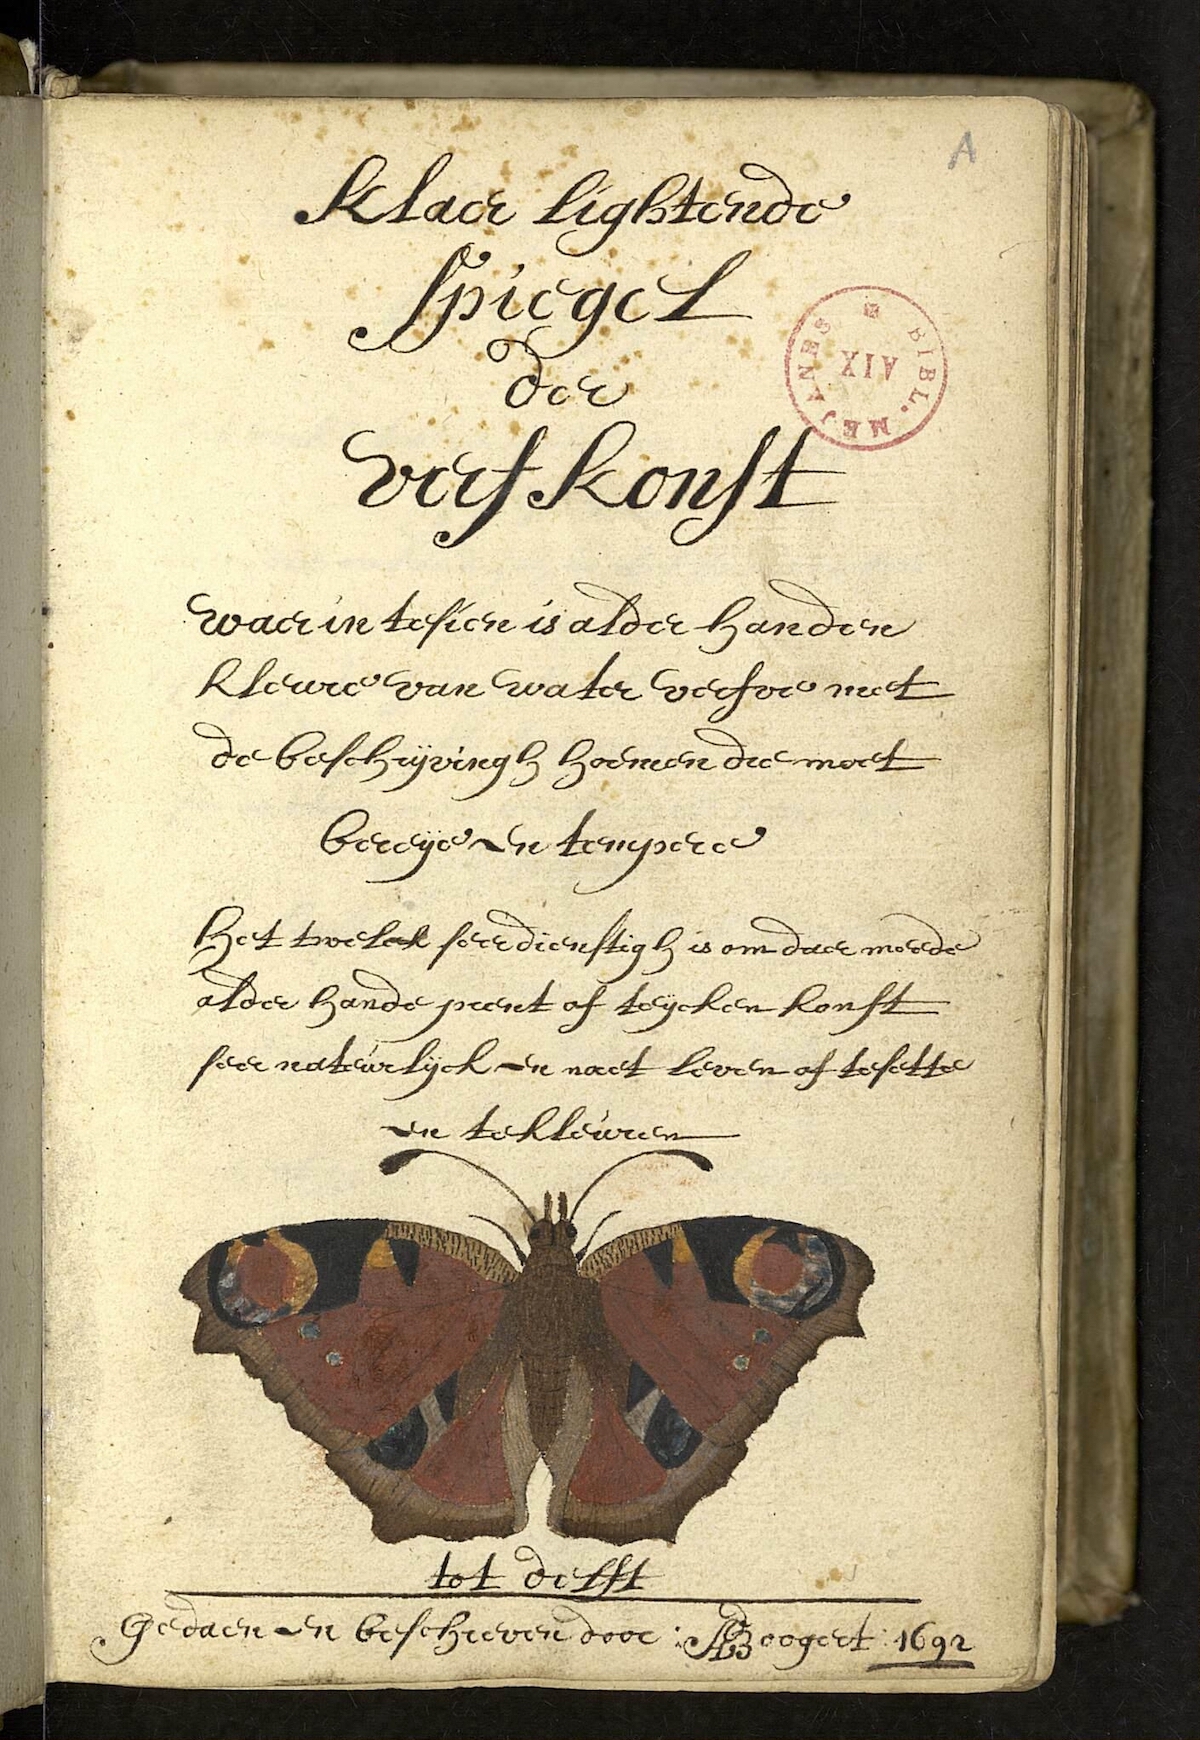 A
Klaer lightende
Spiegel
der
verfkonst
BIBL. MEJANES
AIX
waer in tesien is alder handen
kleure van water verfve met
de beschrijvingh hoemen die moet
bereije en tempere
Het twelck seer dienstigh is om daer meede
alder hande prent of teycken konst
seer natúúrlijck en naet leven af tesette
en tekleúren
tot delft
Gedaen en beschreven door: A Boogert: 1692